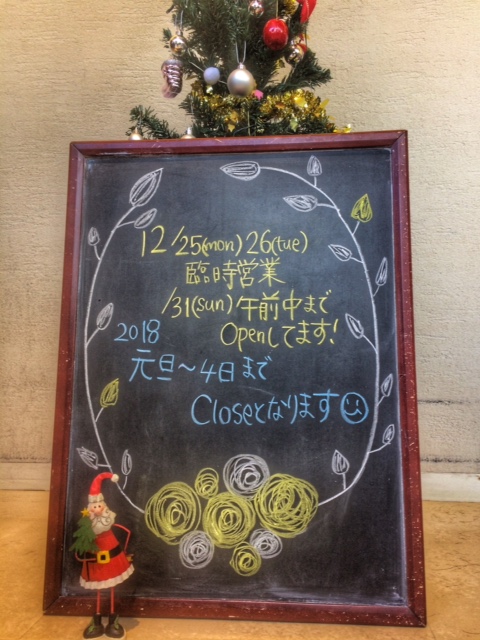 12/25(mon) 26(tue)
臨時営業
/31(sun) 午前中まで
Openしてます!
2018
元旦〜4日まで
Closeとなります